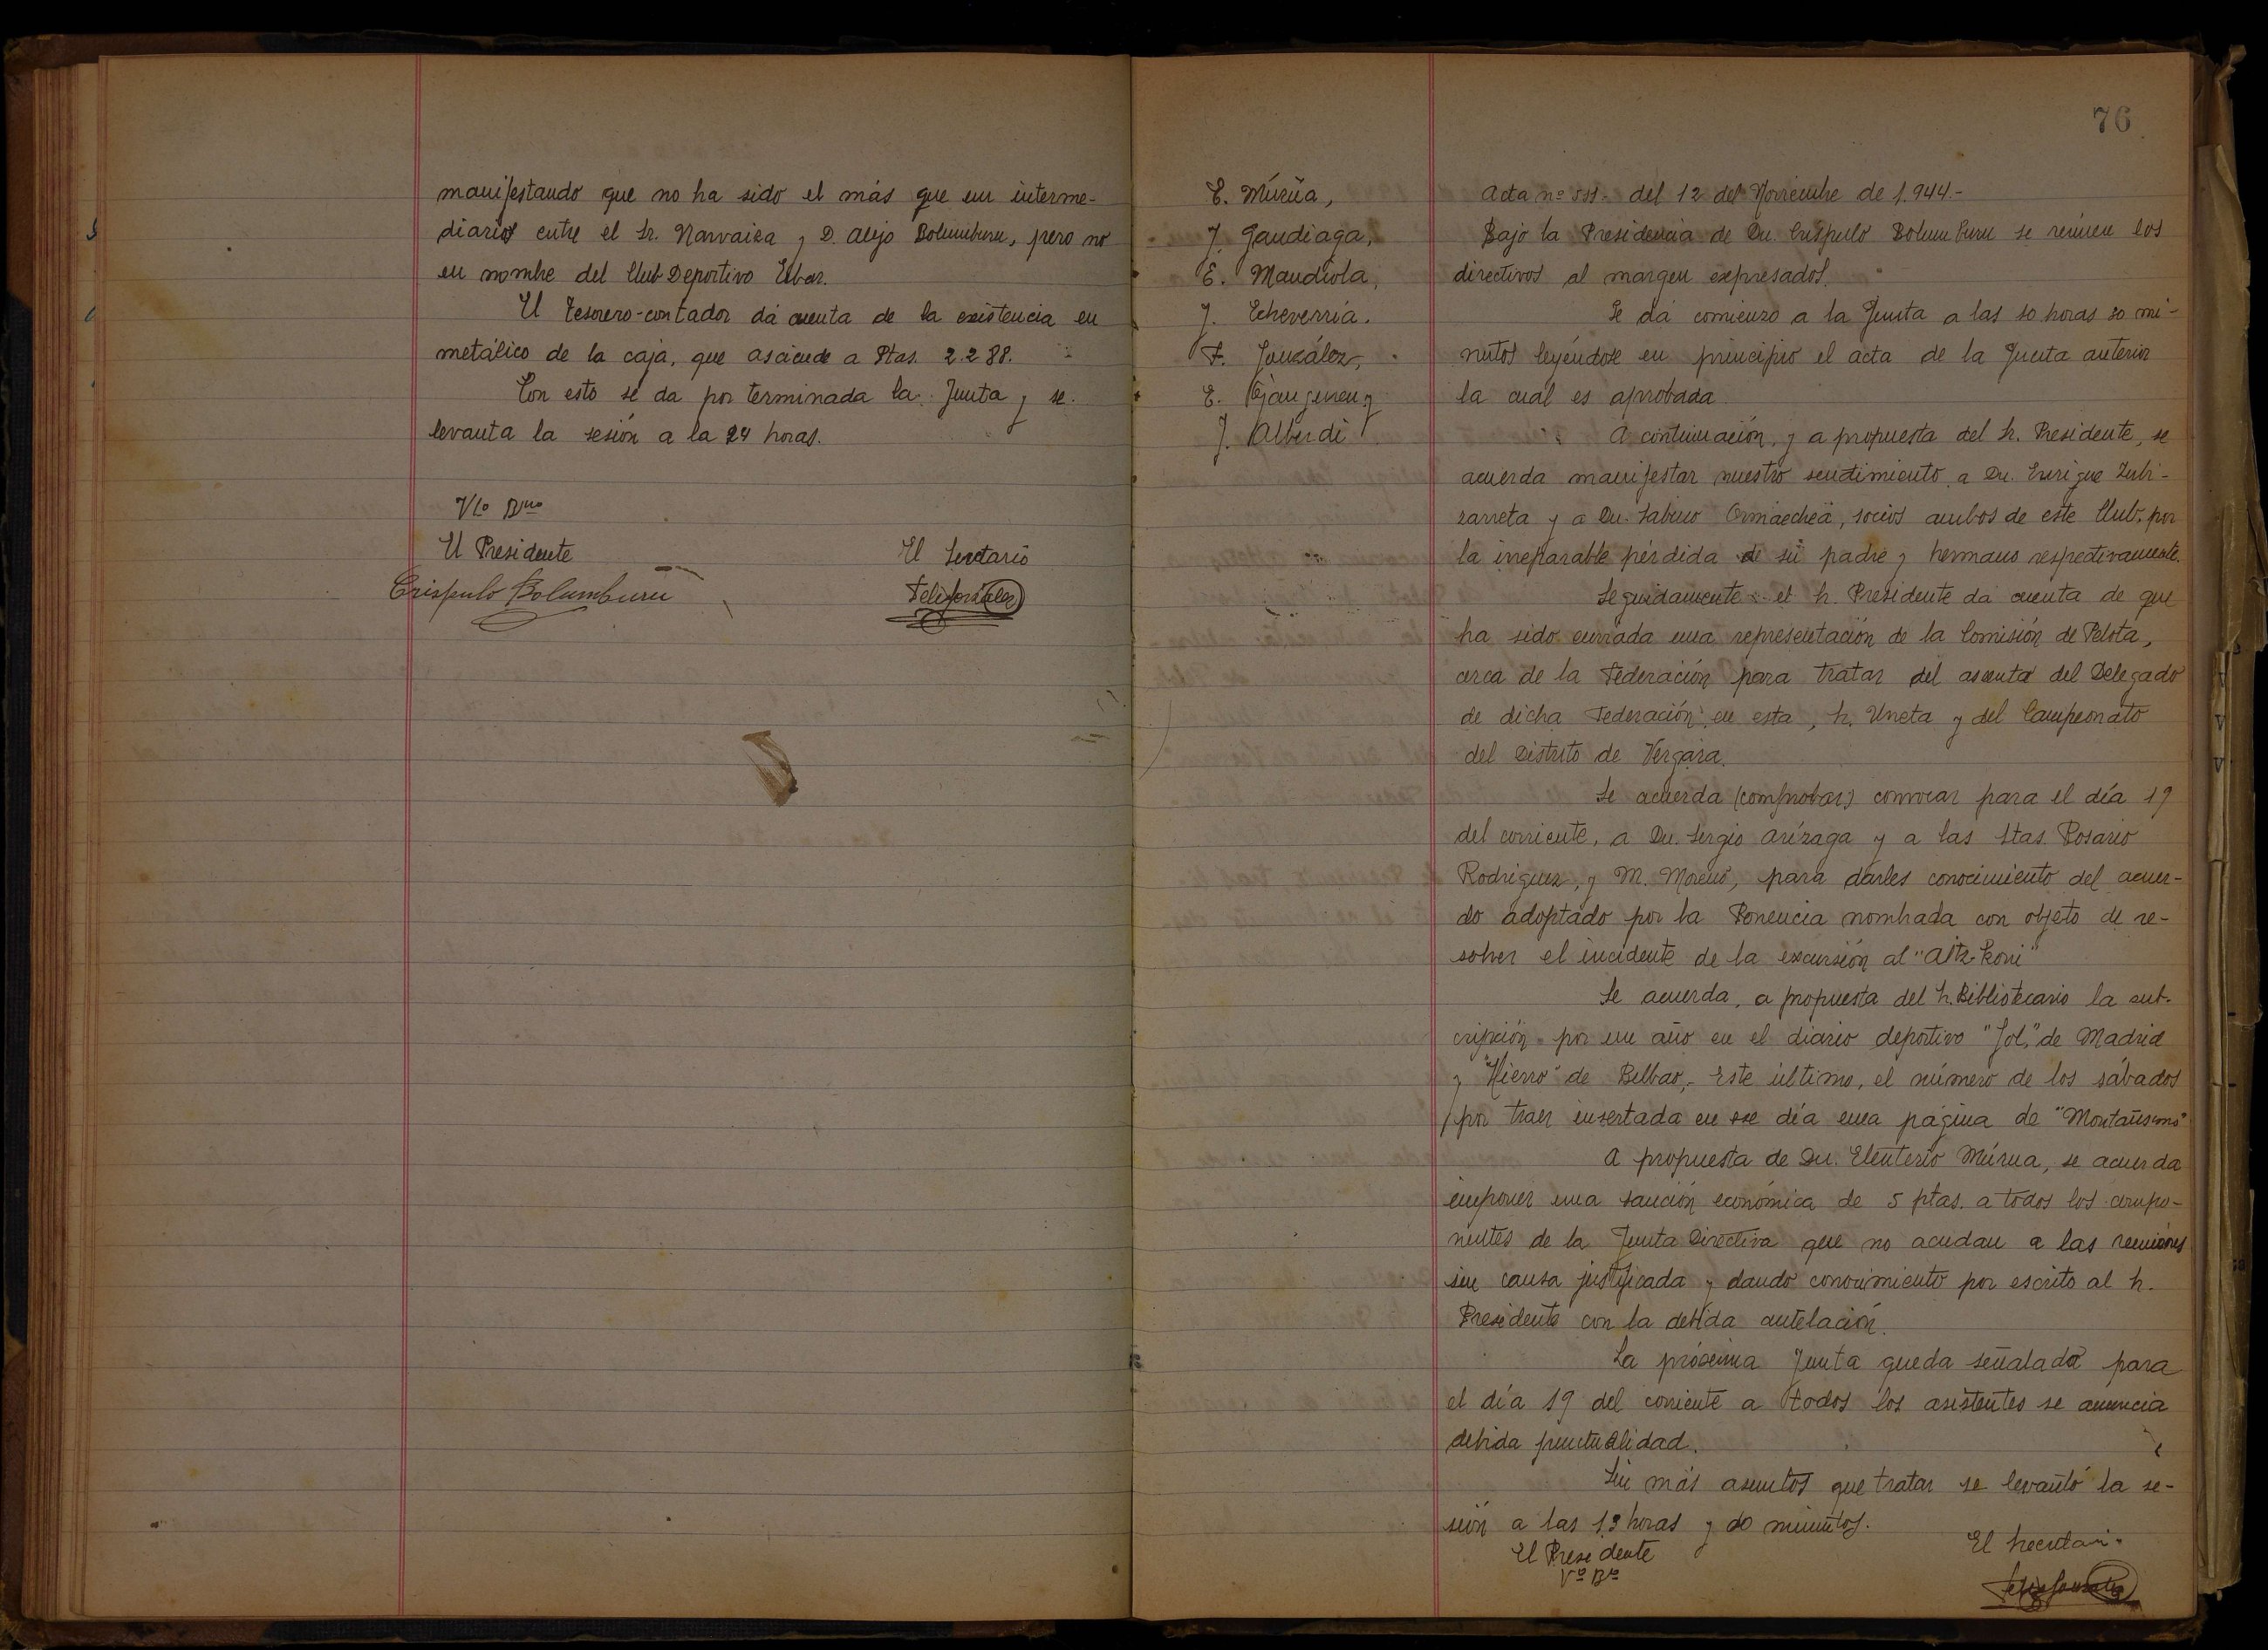 manifestando que no ha sido el más que un interme-
diario entre el Sr. Narvaiza y D. Alejo Bolumburu, pero no
en nombre del Club Deportivo Eibar.
El Tesorero-contador dá cuenta de la existencia en
metálico de la caja, que asciende a Ptas. 2.288.
Con esto se da por terminada la Junta y se
levanta la sesión a la 24 horas.
Vto Bno
El Presidente
El Secretario
Crispulo Bolumburu
76
E. Múrua,
J. Gandiaga,
E. Mandiola,
J. Echeverria.
F. González,
E.
J. Alberdi
Acta nº 511. del 12 del Noviembre de 1.944.-
Bajo la Presidencia de Dn. Crispulo Bolumburu se reúnen los
directivos al margen expresados.
Se dá comienzo a la Junta a las 10 horas 10 mi-
nutos leyéndose en principio el acta de la Junta anterior
la cual es aprobada.
A continuación, y a propuesta del Sr. Presidente, se
acuerda manifestar nuestro sentimiento a Dn. Enrique Zubi-
zarreta y a Dn. Sabino Ormaechea, socios ambos de este Club, por
la irreparable pérdida de su padre y hermano respectivamente.
Seguidamente el Sr. Presidente da cuenta de que
ha sido enviada una representación de la Comisión de Pelota,
cerca de la Federación para tratar del asunto del Delegado
de dicha Federación en esta, Sr. Urreta y del Campeonato
del Distrito de Vergara.
Se acuerda (comprobar) convocar para el día 19
del corriente, a Dn. Sergio Arizaga y a las Stas. Rosario
Rodriguez, y M. Moreno, para darles conocimiento del acuer-
do adoptado por la Ponencia nombrada con objeto de re-
solver el incidente de la excursión al "Aitz-Koni"
Se acuerda, a propuesta del Sr. Bibliotecario la sub-
cripción por un año en el diario deportivo "Gol," de Madrid
y "Hierro" de Bilbao,- Este último, el número de los sábados
por traer insertada en ese día una página de "Montañismo"
A propuesta de Dn. Eleuterio Múrua, se acuerda
imponer una sanción económica de 5 ptas. a todos los compo-
nentes de la Junta Directiva que no acudan a las reuniones
sin causa justificada y dando conocimiento por escrito al Sr.
Presidente con la debida antelación.
La próxima Junta queda señalada para
el día 19 del corriente a todos los asistentes se anuncia
debida puntualidad.
Sin más asuntos que tratar se levantó la se-
sión a las 13 horas y 10 minutos.
El Presidente
Vº Bº
El Secretari.